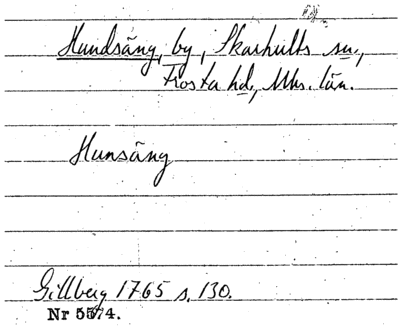 Hundsäng, by, Skarhults sn.,
Frosta hd., Mhs. län.
Hunsäng
Gillberg 1765 s. 130.
Nr 5574.